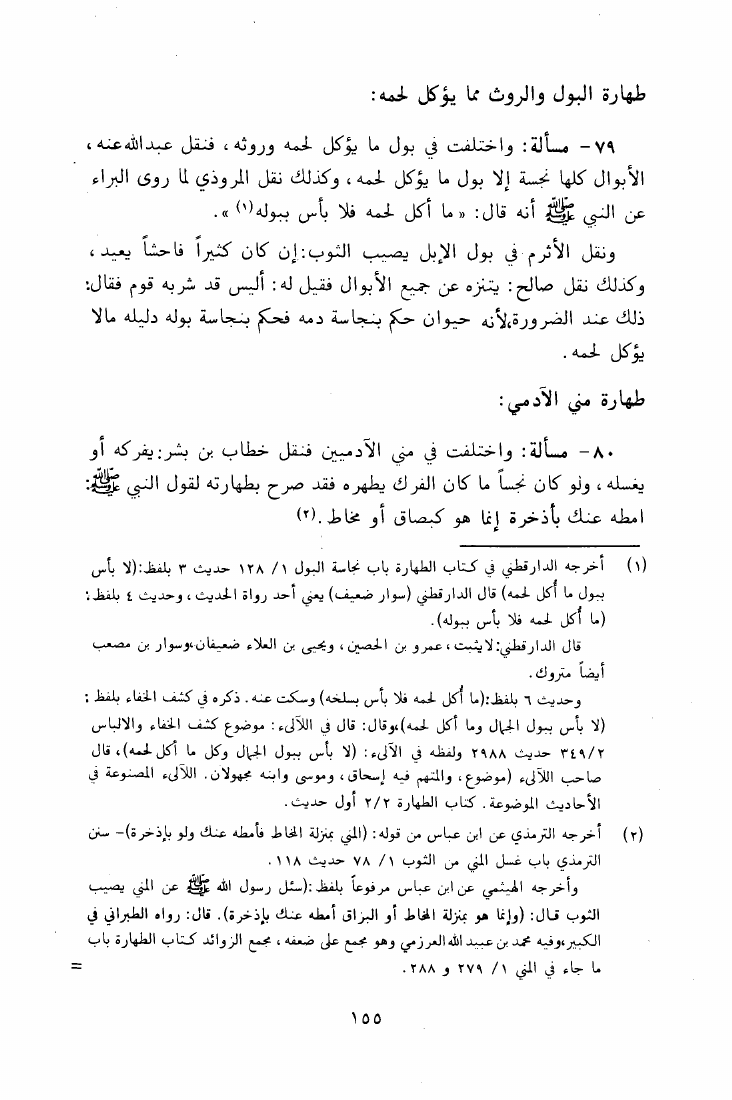 طهارة البول والروث مما يؤكل لحمه:
٧٩ - مسألة: واختلفت في بول ما يؤكل لحمه وروثه، فنقل عبدالله عنه،
الأبوال كلها نجسة إلا بول ما يؤكل لحمه، وكذلك نقل المروذي لما روى البراء
عن النبي ﷺ أنه قال: «ما أكل لحمه فلا بأس ببوله (١)».
ونقل الأثرم في بول الإبل يصيب الثوب: إن كان كثيراً فاحشاً يعيد،
وكذلك نقل صالح: يتنزه عن جميع الأبوال فقيل له: أليس قد شربه قوم فقال:
ذلك عند الضرورة، لأنه حيوان حكم بنجاسة دمه فحكم بنجاسة بوله دليله مالا
يؤكل لحمه.
طهارة مني الآدمي:
٨٠ - مسألة: واختلفت في مني الآدميين فنقل خطاب بن بشر: يفركه أو
يغسله، ولو كان نجساً ما كان الفرك يطهره فقد صرح بطهارته لقول النبي ﷺ:
امطه عنك بأذخرة إنما هو كبصاق أو مخاط. (٢)
(١) أخرجه الدارقطني في كتاب الطهارة باب نجاسة البول ١/ ١٢٨ حديث ٣ بلفظ: (لا بأس
ببول ما أُكل لحمه) قال الدارقطني (سوار ضعيف) يعني أحد رواة الحديث، وحديث ٤ بلفظ:
(ما أُكل لحمه فلا بأس ببوله).
قال الدارقطني: لا يثبت، عمرو بن الحصين، ويحيى بن العلاء ضعيفان، وسوار بن مصعب
أيضاً متروك.
وحديث ٦ بلفظ: (ما أُكل لحمه فلا بأس بسلخه) وسكت عنه. ذكره في كشف الخفاء بلفظ:
(لا بأس ببول الجمال وما أكل لحمه)، وقال: قال في اللآلىء: موضوع كشف الخفاء والالباس
٣٤٩/٢ حديث ٢٩٨٨ ولفظه في الآلىء: (لا بأس ببول الجمال وكل ما أكل لحمه)، قال
صاحب اللآلىء (موضوع، والمتهم فيه إسحاق، وموسى وابنه مجهولان. اللآلىء المصنوعة في
الأحاديث الموضوعة. كتاب الطهارة ٢/٢ أول حديث.
(٢) أخرجه الترمذي عن ابن عباس من قوله: (المني بمنزلة المخاط فأمطه عنك ولو بإذخرة) - سنن
الترمذي باب غسل المني من الثوب ١/ ٧٨ حديث ١١٨.
وأخرجه الهيثمي عن ابن عباس مرفوعاً بلفظ: (سئل رسول الله ﷺ عن المني يصيب
الثوب قال: (وإنما هو بمنزلة المخاط أو البزاق أمطه عنك بإذخرة). قال: رواه الطبراني في
الكبير، وفيه محمد بن عبيد الله العرزمي وهو مجمع على ضعفه، مجمع الزوائد كتاب الطهارة باب
ما جاء في المني ١/ ٢٧٩ و ٢٨٨. =
١٥٥